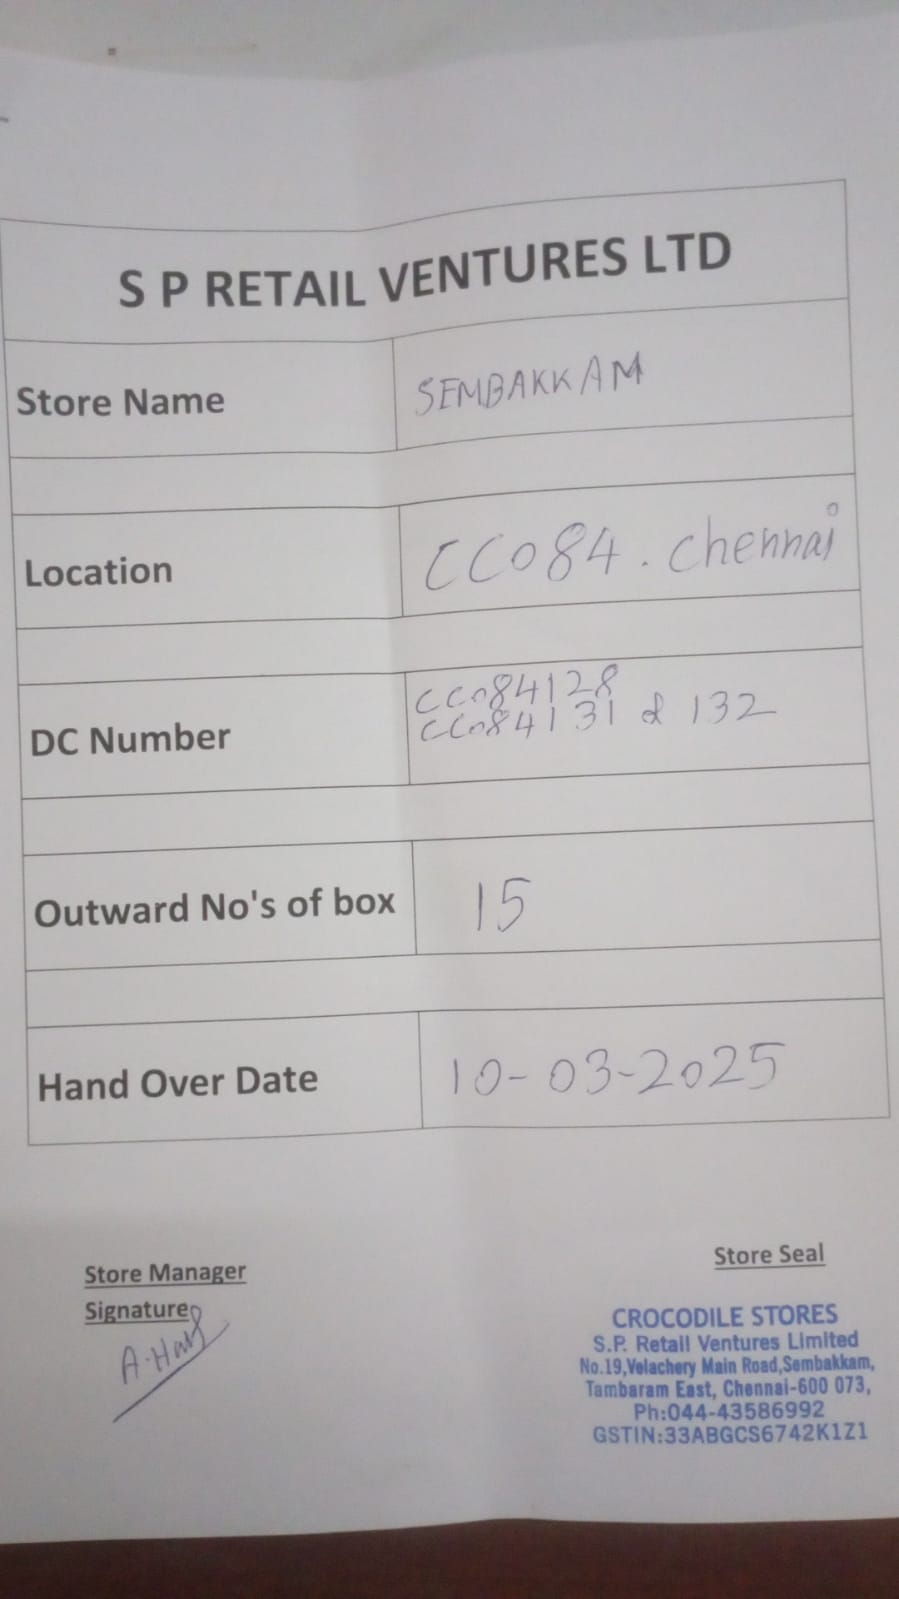 S P RETAIL VENTURES LTD
Store Name SEMBAKKAM
Location CC084 . Chennai
DC Number CC084128
CC084131 & 132
Outward No's of box 15
Hand Over Date 10-03-2025
Store Manager
Signature
A.
Store Seal
CROCODILE STORES
S.P. Retail Ventures Limited
No.19,Velachery Main Road,Sembakkam,
Tambaram East, Chennai-600 073,
Ph:044-43586992
GSTIN:33ABGCS6742K1Z1